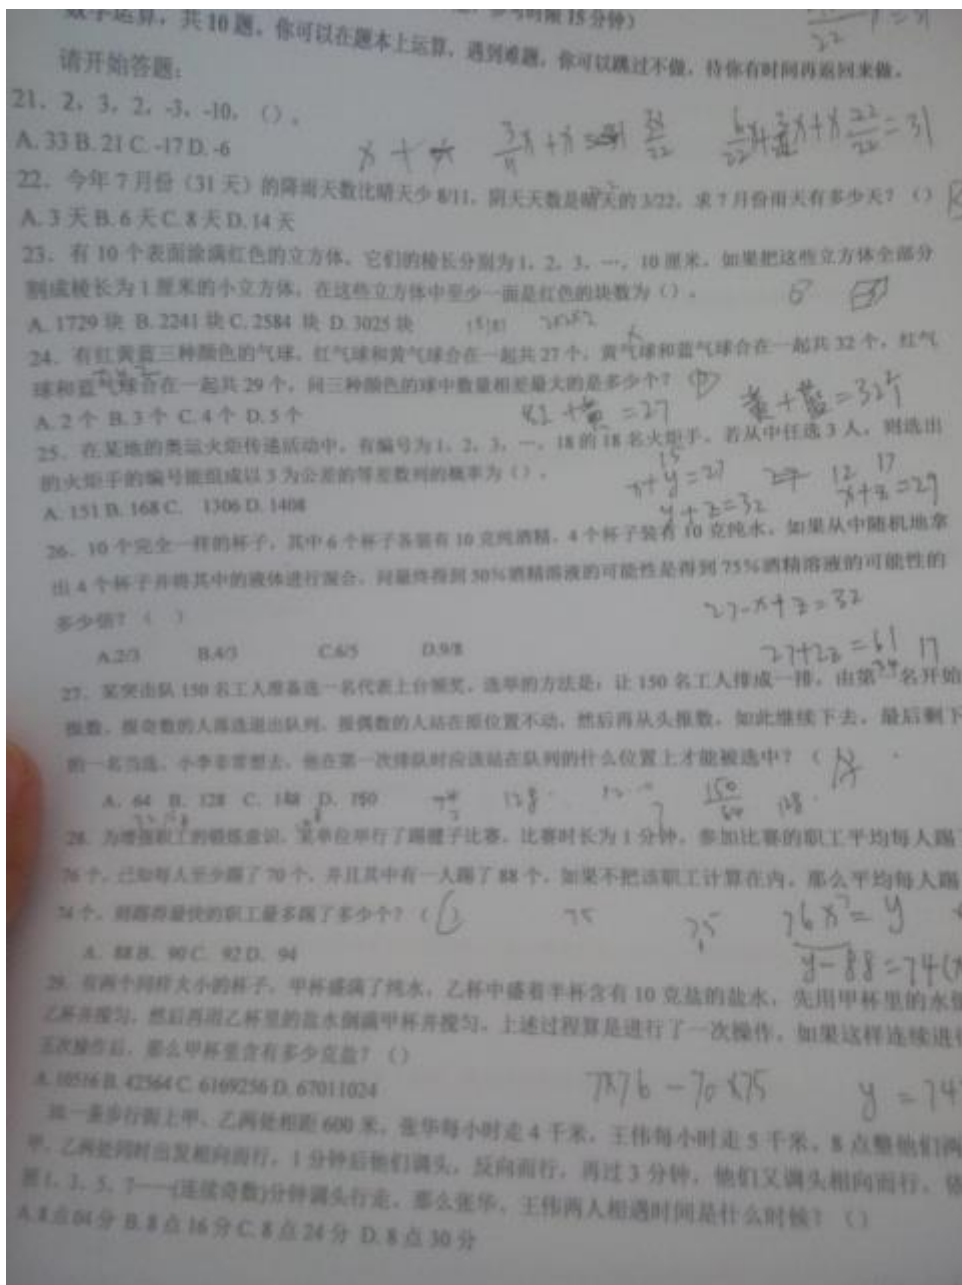 数学运算，共10题，你可以在题本上运算，遇到难题，你可以跳过不做，待你有时间再返回来做。
请开始答题：
21．2，3，2，-3，-10，（）。
A. 33 B. 21 C. -17 D. -6
22．今年7月份（31天）的降雨天数比晴天少8/11，阴天天数是晴天的3/22，求7月份雨天有多少天？（）
A. 3天 B. 6天 C. 8天 D. 14天
23．有10个表面涂满红色的立方体，它们的棱长分别为1，2，3，…，10厘米，如果把这些立方体全部分
割成棱长为1厘米的小立方体，在这些立方体中至少一面是红色的块数为（）。
A. 1729块 B. 2241块 C. 2584 块 D. 3025块
24．有红黄蓝三种颜色的气球，红气球和黄气球合在一起共27个，黄气球和蓝气球合在一起共32个，红气
球和蓝气球合在一起共29个，问三种颜色的球中数量相差最大的是多少个？
A. 2个 B. 3个 C. 4个 D. 5个
红+黄=27 黄+蓝=32个
25．在某地的奥运火炬传递活动中，有编号为1，2，3，…，18的18名火炬手，若从中任选3人，则选出
的火炬手的编号能组成以3为公差的等差数列的概率为（）．
x+y=27 x+z=29
y+z=32
A. 151 B. 168 C. 1306 D. 1408
26．10个完全一样的杯子，其中6个杯子各装有10克纯酒精，4个杯子装有10克纯水，如果从中随机地拿
出4个杯子并将其中的液体进行混合，问最终得到50%酒精溶液的可能性是得到75%酒精溶液的可能性的
多少倍？（ ）
27-x+z=32
A.2/3 B.4/3 C.6/5 D.9/8
27+2z=61 17
27．某突击队150名工人准备选一名代表上台领奖，选举的方法是：让150名工人排成一排，由第一名开始
报数，报奇数的人落选退出队列，报偶数的人站在原位置不动，然后再从头报数，如此继续下去，最后剩下
的一名当选，小李非常想去，他在第一次排队时应该站在队列的什么位置上才能被选中？（
A．64 B．128 C．148 D．150
28．为增强职工的锻炼意识，某单位举行了踢毽子比赛，比赛时长为1分钟，参加比赛的职工平均每人踢
76个，已知每人至少踢了70个，并且其中有一人踢了88个，如果不把该职工计算在内，那么平均每人踢
74个，则踢得最快的职工最多踢了多少个？（ ）
A．88 B．90 C．92 D．94
29．有两个同样大小的杯子，甲杯盛满了纯水，乙杯中盛着半杯含有10克盐的盐水，先用甲杯里的水
乙杯并搅匀，然后再用乙杯里的盐水倒满甲杯并搅匀，上述过程算是进行了一次操作，如果这样连续进
五次操作后，那么甲杯里含有多少克盐？（）
A. 10516 B. 42564 C. 6169256 D. 67011024
7×76-70×75
30.一条步行街上甲、乙两处相距600米，张华每小时走4千米，王伟每小时走5千米，8点整他们两
甲、乙两处同时出发相向而行，1分钟后他们调头，反向而行，再过3分钟，他们又调头相向而行，
照1，3，5，7……(连续奇数)分钟调头行走，那么张华、王伟两人相遇时间是什么时候？（）
A.8点04分 B.8点16分 C.8点24分 D.8点30分